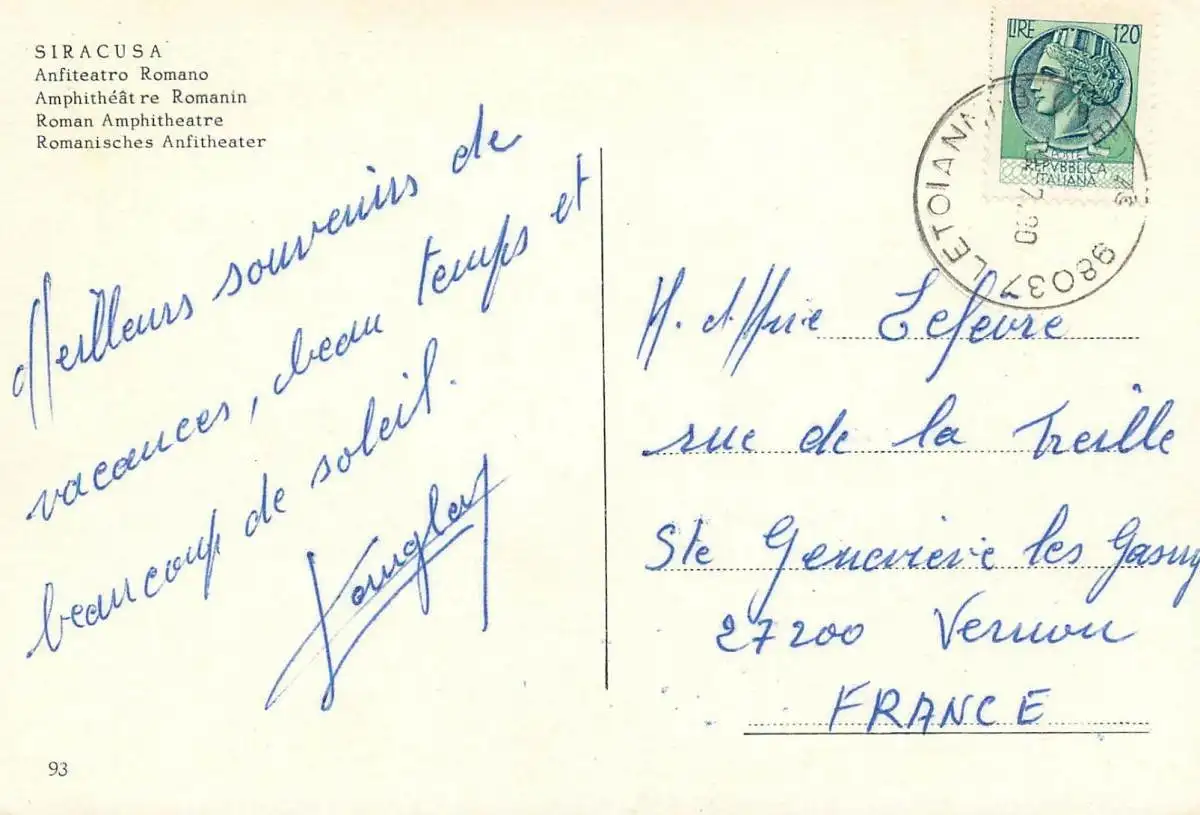 SIRACUSA
Anfiteatro Romano
Amphithéâtre Romanin
Roman Amphitheatre
Romanisches Anfitheater
Meilleurs souvenirs de
vacances, beau temps et
beaucoup de soleil.
93
LIRE 120
POSTE
REPVBBLICA
ITALIANA
98037 LETOIANNI
M. et Mme Lefèvre
rue de la Treille
Ste Geneviève les Gasny
27200 Vernon
FRANCE